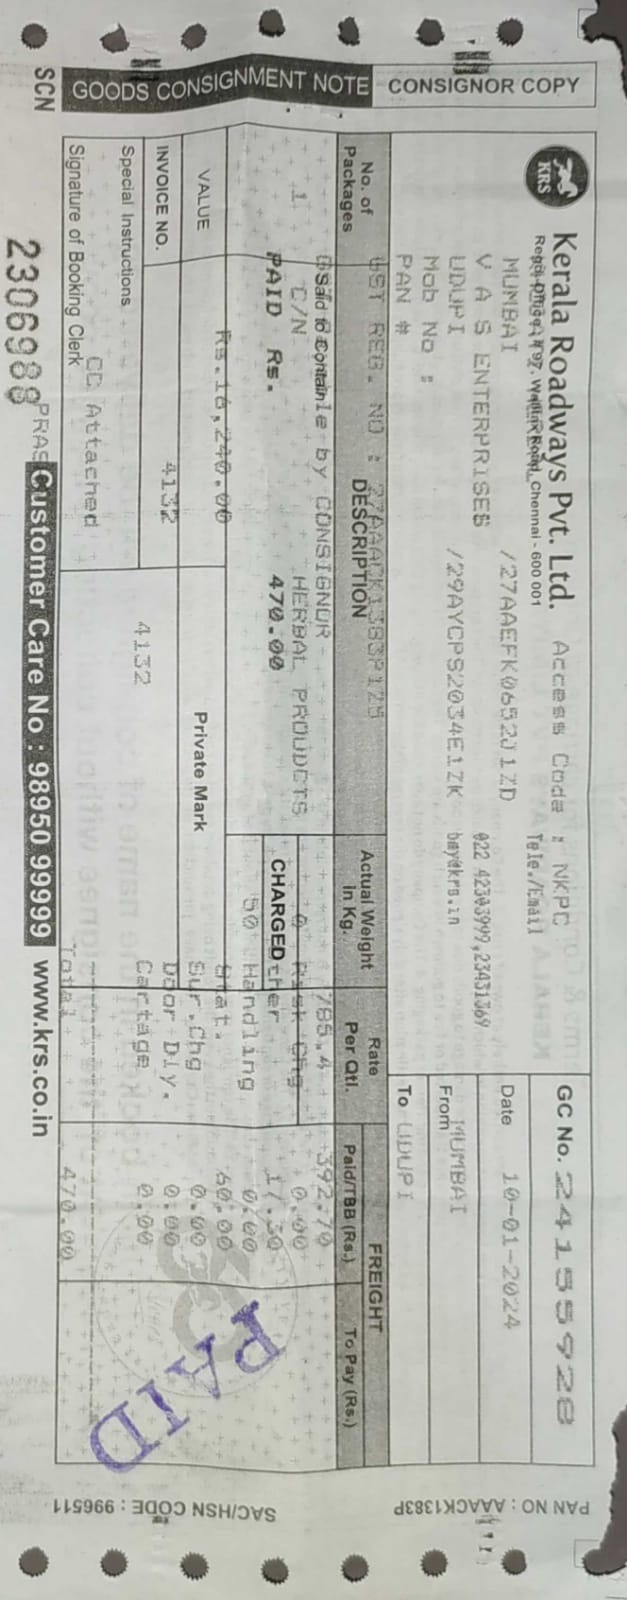 GOODS CONSIGNMENT NOTE CONSIGNOR COPY
KRS
Kerala Roadways Pvt. Ltd. Access Code : NKPC
Chennai - 600 001 Tele./Email
GC No. 24155928
MUMBAI /27AAEFK0652J1ZD 022 42303999,23431369
Date 10-01-2024
V A S ENTERPRISES
UDUPI /29AYCPS2034E1ZK bmy@krs.in
From MUMBAI
Mob No :
PAN #
To UDUPI
No. of Packages DESCRIPTION Actual Weight In Kg. Rate Per Qtl. FREIGHT
Paid/TBB (Rs.) To Pay (Rs.)
GST REG. NO : 27AAACK1383P1Z5
Said to Contain by CONSIGNOR 785.4 392.70
1 C/N HERBAL PRODUCTS 0 Risk Chg 0.00
PAID Rs. 470.00 CHARGED ther 17.30
50 Handling 0.00
VALUE Rs.16,240.00 Stat. 60.00
Private Mark Sur.Chg 0.00
INVOICE NO. 4132 Door Dly. 0.00
4132 Cartage 0.00
Special Instructions
CC Attached
Signature of Booking Clerk Total 470.00
PAID
SCN 2306988 PRAS Customer Care No : 98950 99999 www.krs.co.in
PAN NO : AAACK1383P
SAC/HSN CODE : 996511